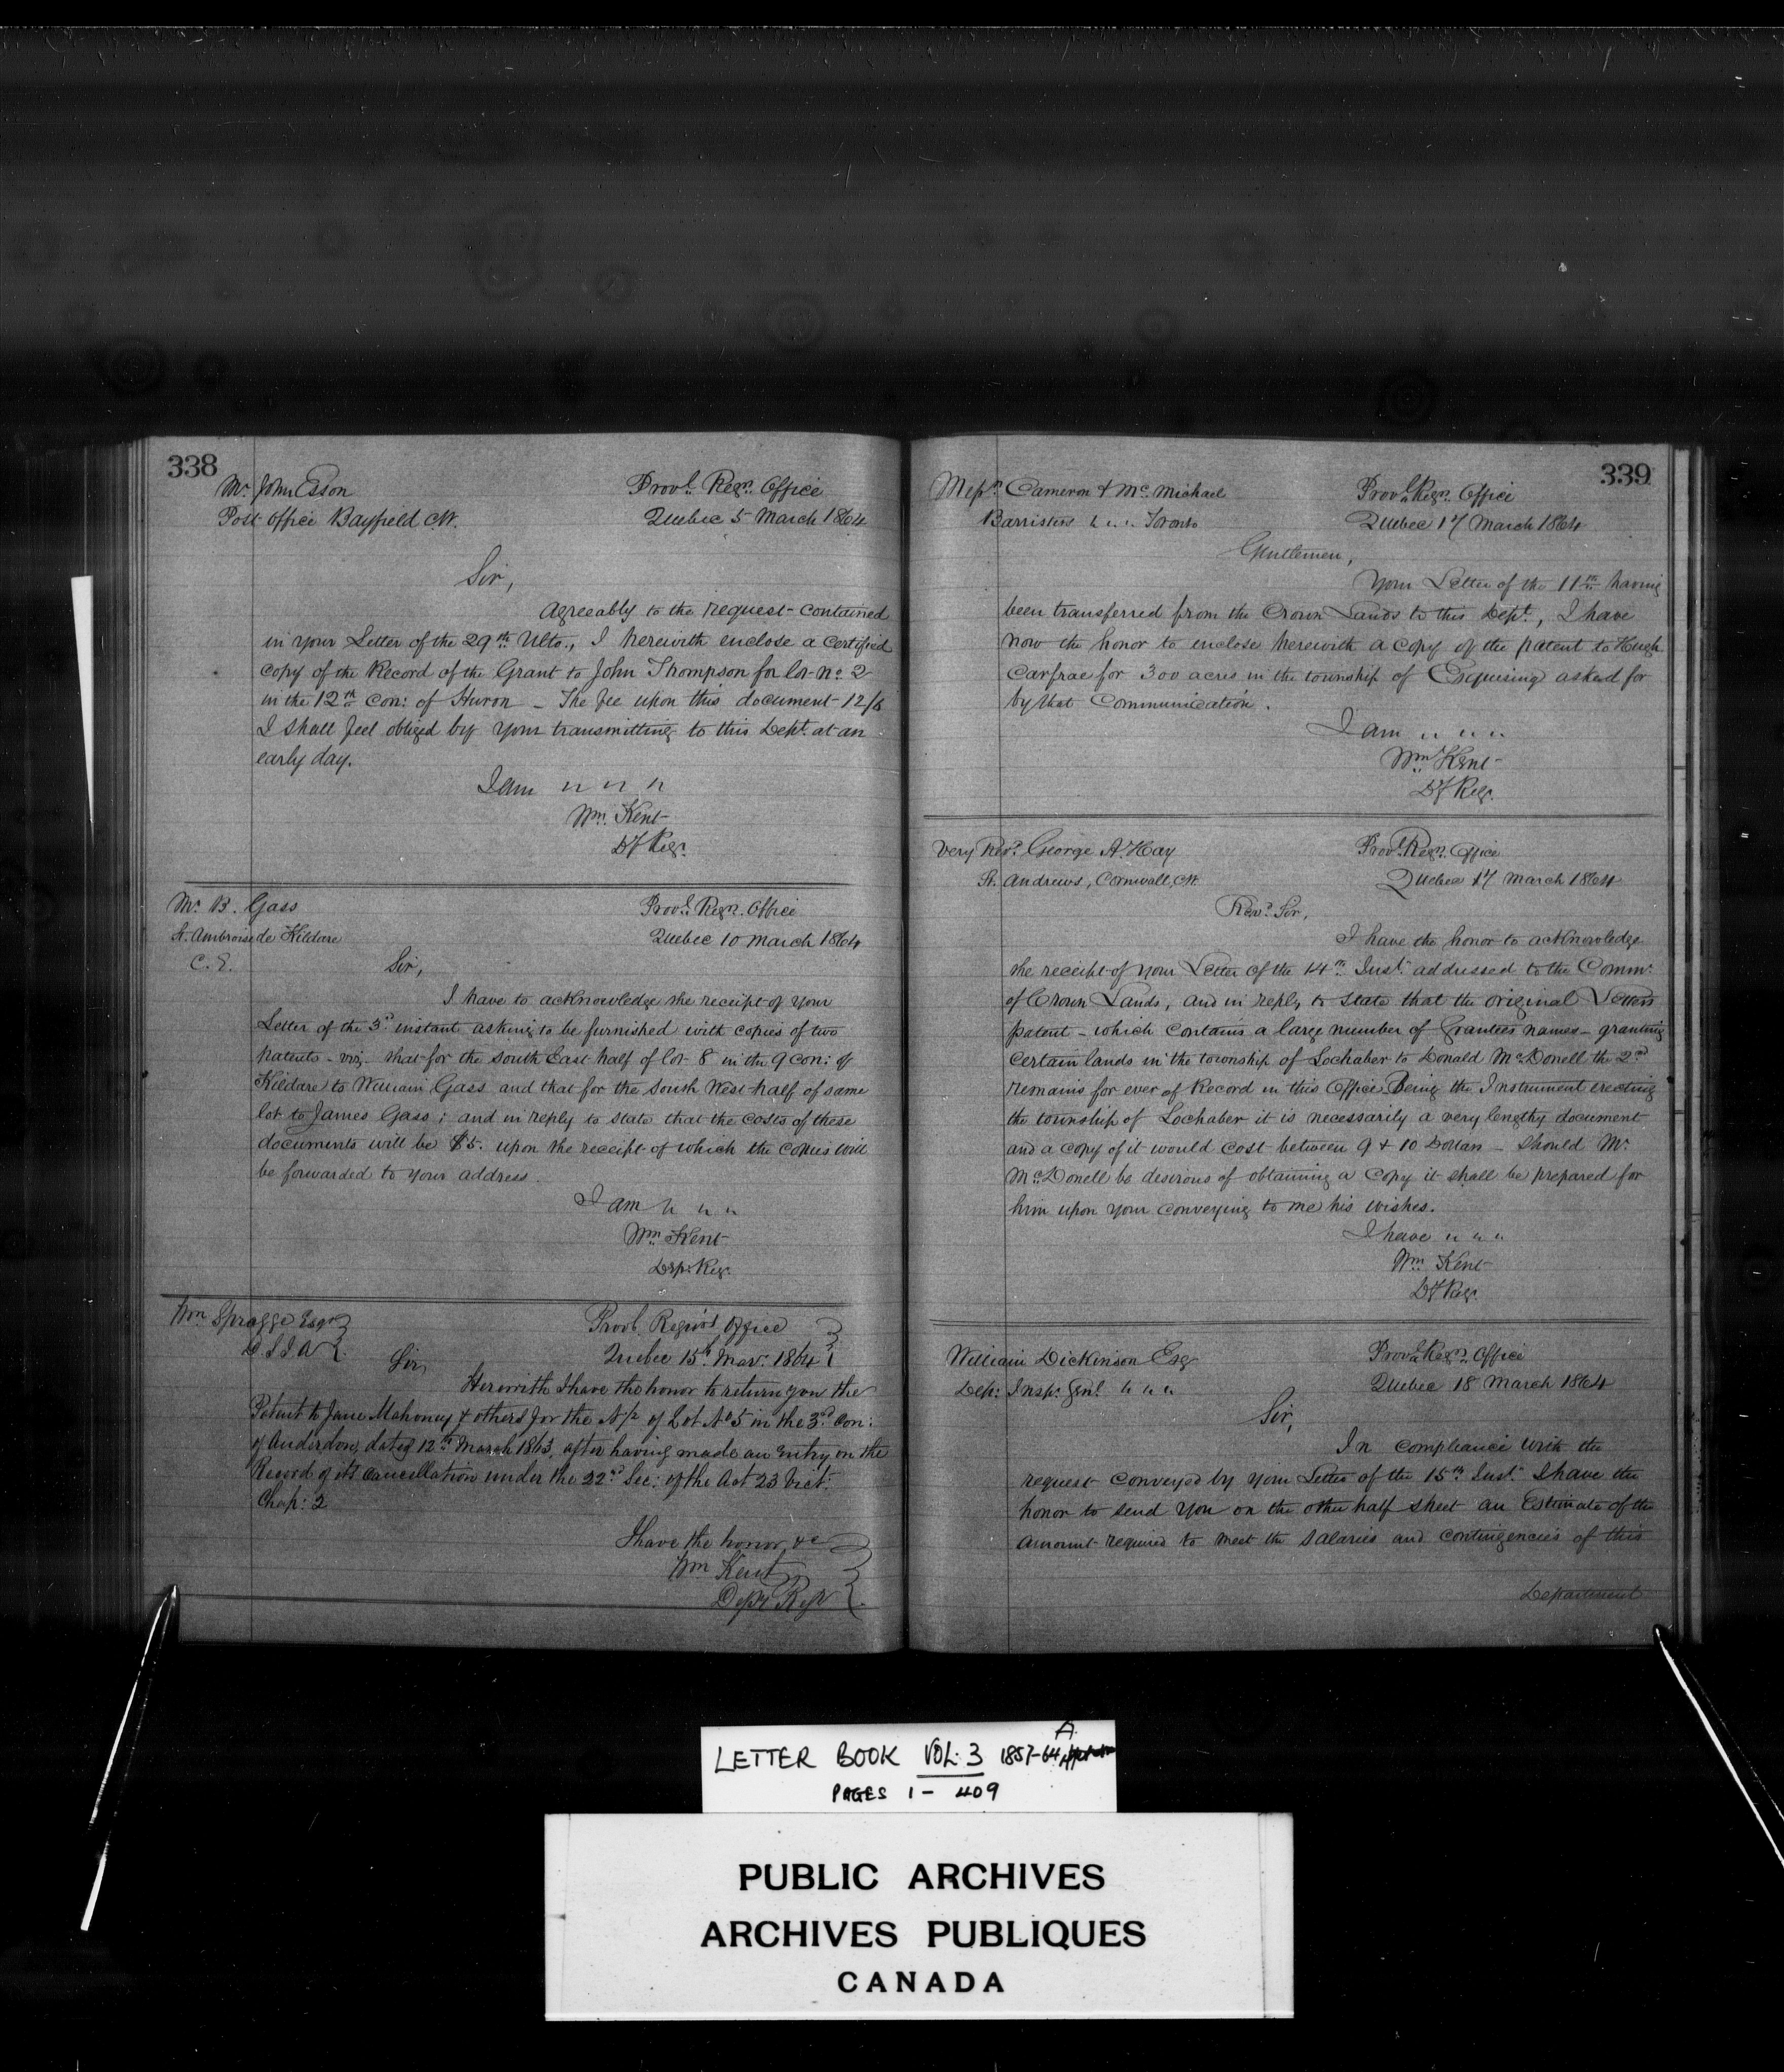 338
Mr John Esson
Post Office Bayfield CW.
Provl. Regrs. Office
Quebec 5 March 1864
Sir,
Agreeably to the request contained
in your Letter of the 29th Ulto., I herewith enclose a Certified
copy of the Record of the Grant to John Thompson for lot No. 2
in the 12th Con: of Huron _ The fee upon this document 12/6
I shall feel obliged by your transmitting to this Dept. at an
early day.
I am " " "
Wm. Kent
Dy Regr.
Mr. B. Gass
St. Ambroise de Kildare
C. E.
Provl. Regrs. Office
Quebec 10 March 1864
Sir,
I have to acknowledge the receipt of your
Letter of the 3d instant asking to be furnished with copies of two
patents - viz. that for the South East half of lot 8 in the 9 Con: of
Kildare to William Gass and that for the South West half of same
lot to James Gass; and in reply to state that the costs of these
documents will be $5. upon the receipt of which the copies will
be forwarded to your address.
I am " " "
Wm. Kent
Dep: Regr.
Wm Spragge Esqr
D. S. I. A
Provl. Regrar's Office
Quebec 15th Mar: 1864
Sir,
Herewith I have the honor to return you the
Patent to Jane Mahoney & others for the N/2 of Lot No 5 in the 3d Con:
of Anderdon, dated 12th March 1863, after having made an entry on the
Record of its cancellation under the 22nd Sec: of the Act 23 Vict:
Chap: 2
I have the honor &c
Wm Kent
Depy Regr
339
Messrs. Cameron & McMichael
Barristers " " " Toronto
Provl. Regrs. Office
Quebec 17 March 1864
Gentlemen,
Your Letter of the 11th having
been transferred from the Crown Lands to this Dept., I have
now the honor to enclose herewith a copy of the patent to Hugh
Carfrae for 300 acres in the township of Esquesing asked for
by that Communication.
I am " " "
Wm. Kent
Dy Regr.
Very Revd. George A. Hay
St. Andrews, Cornwall, CW.
Provl. Regrs. Office
Quebec 17 March 1864
Revd. Sir,
I have the honor to acknowledge
the receipt of your Letter of the 14th Inst. addressed to the Commr.
of Crown Lands, and in reply to state that the original Letters
patent - which contains a large number of Grantees names - granting
certain lands in the township of Lochaber to Donald McDonell the 2nd
remains for ever of Record in this Office. Being the Instrument erecting
the township of Lochaber it is necessarily a very lengthy document
and a copy of it would cost between 9 & 10 Dollars - should Mr.
McDonell be desirous of obtaining a copy it shall be prepared for
him upon your conveying to me his wishes.
I have " " "
Wm. Kent
Dy Regr.
William Dickinson Esq
Dep: Inspr. Genl. " " "
Provl. Regrs. Office
Quebec 18 March 1864
Sir,
In compliance with the
request conveyed by your Letter of the 15th Inst. I have the
honor to send you on the other half sheet an Estimate of the
amount required to meet the salaries and contingencies of this
Department
LETTER BOOK VOL. 3 1857-64 A.
PAGES 1 - 409
PUBLIC ARCHIVES
ARCHIVES PUBLIQUES
CANADA